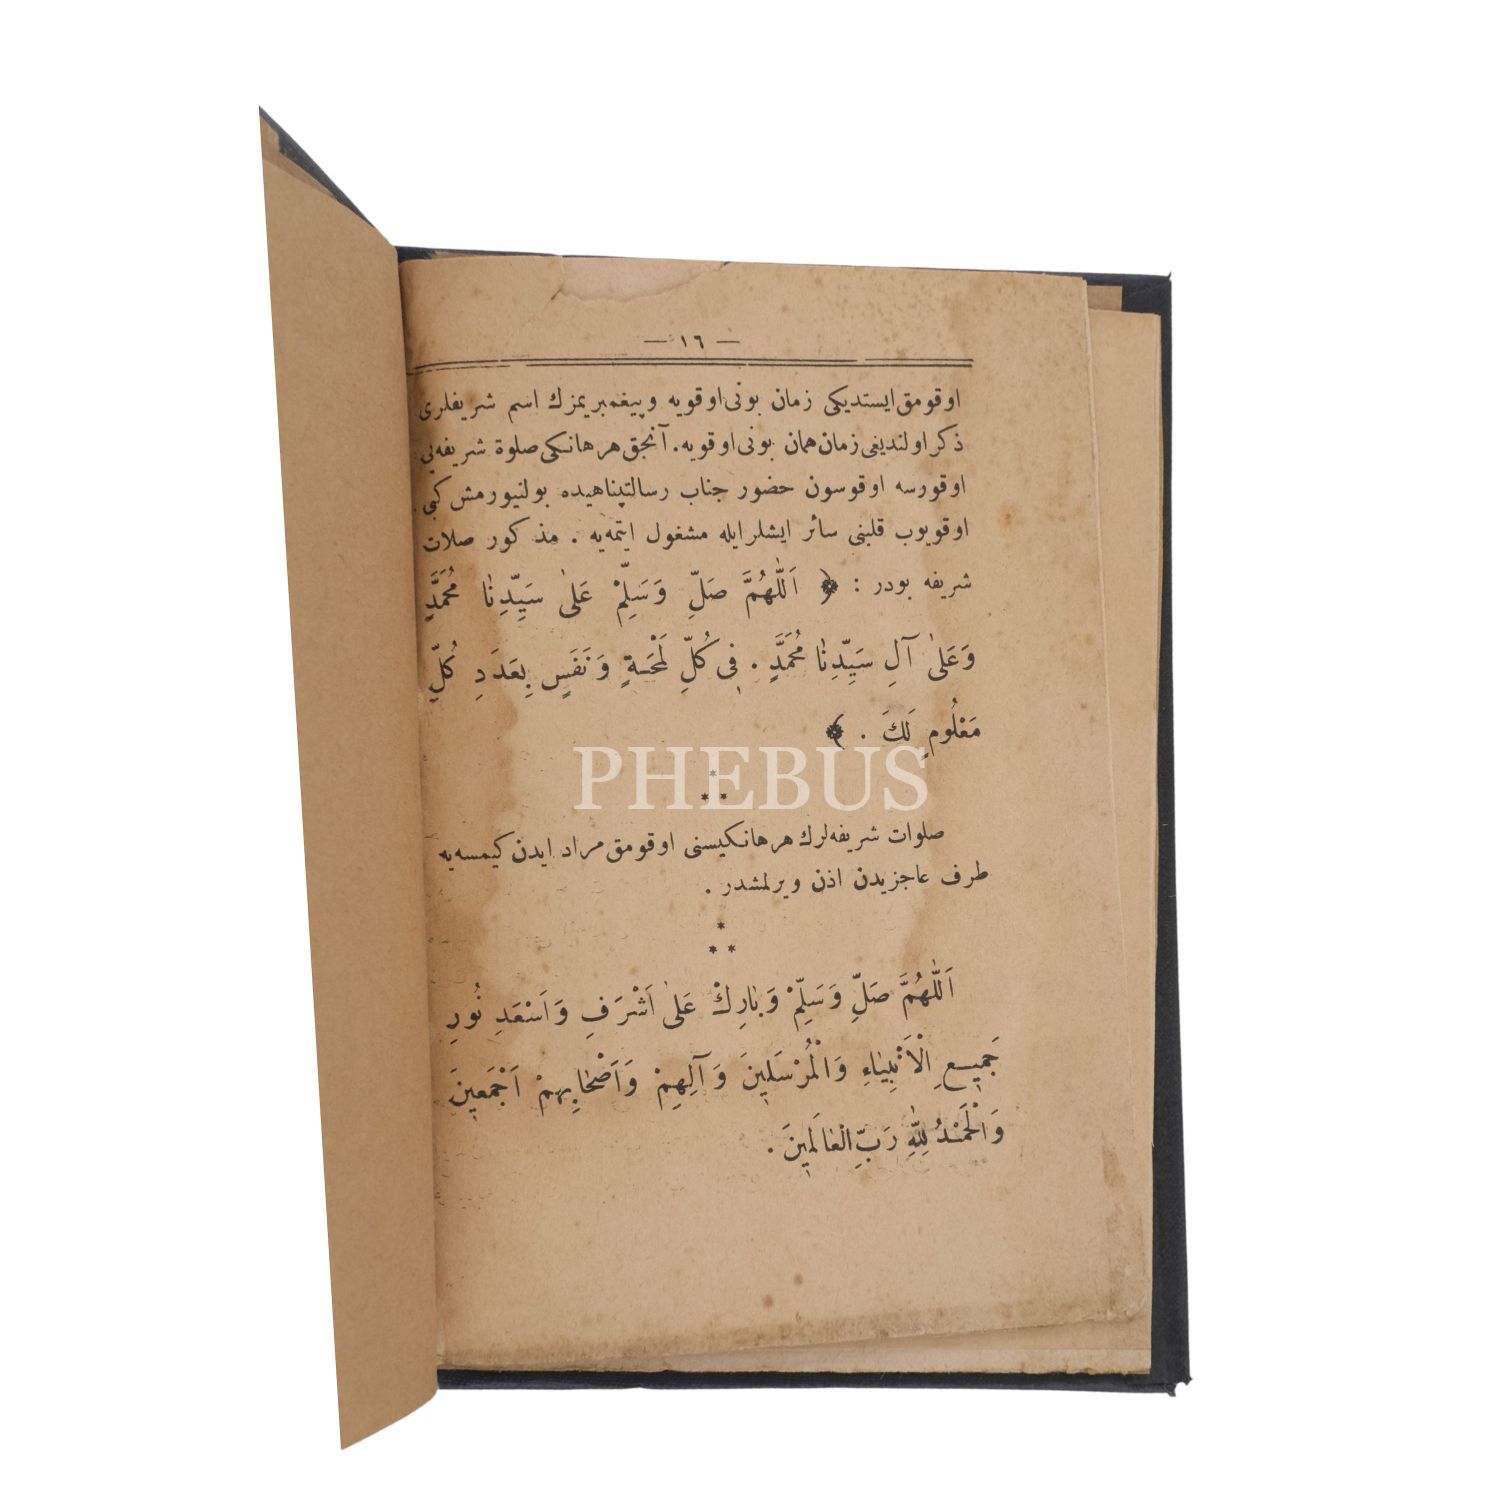 — ١٦ —
اوقومق ايستديكى زمان بونى اوقويه وپيغمبريمزك اسم شريفلرى
ذكر اولنديغى زمان همان بونى اوقويه. آنجق هر هانكى صلوة شريفه‌يى
اوقورسه اوقوسون حضور جناب رسالتپناهيده بولنيورمش كبى
اوقويوب قلبنى سائر ايشلر ايله مشغول ايتمه‌يه . مذكور صلات
شريفه بودر : ﴿ اَللّٰهُمَّ صَلِّ وَسَلِّمْ عَلىٰ سَيِّدِنٰا مُحَمَّدٍ
وَعَلىٰ آلِ سَيِّدِنٰا مُحَمَّدٍ . فِى كُلِّ لَمْحَةٍ وَنَفَسٍ بِعَدَدِ كُلِّ
مَعْلُومٍ لَكَ . ﴾
PHEBUS
* * *
صلوات شريفه‌لرك هر هانكيسنى اوقومق مراد ايدن كيمسه‌يه
طرف عاجزيدن اذن ويرلمشدر .
* * *
اَللّٰهُمَّ صَلِّ وَسَلِّمْ وَبٰارِكْ عَلىٰ اَشْرَفِ وَاَسْعَدِ نُورِ
جَمِيعِ الْاَنْبِيٰاءِ وَالْمُرْسَلِينَ وَآلِهِمْ وَاَصْحٰابِهِمْ اَجْمَعِينَ
وَالْحَمْدُ لِلّٰهِ رَبِّ الْعٰالَمِينَ .